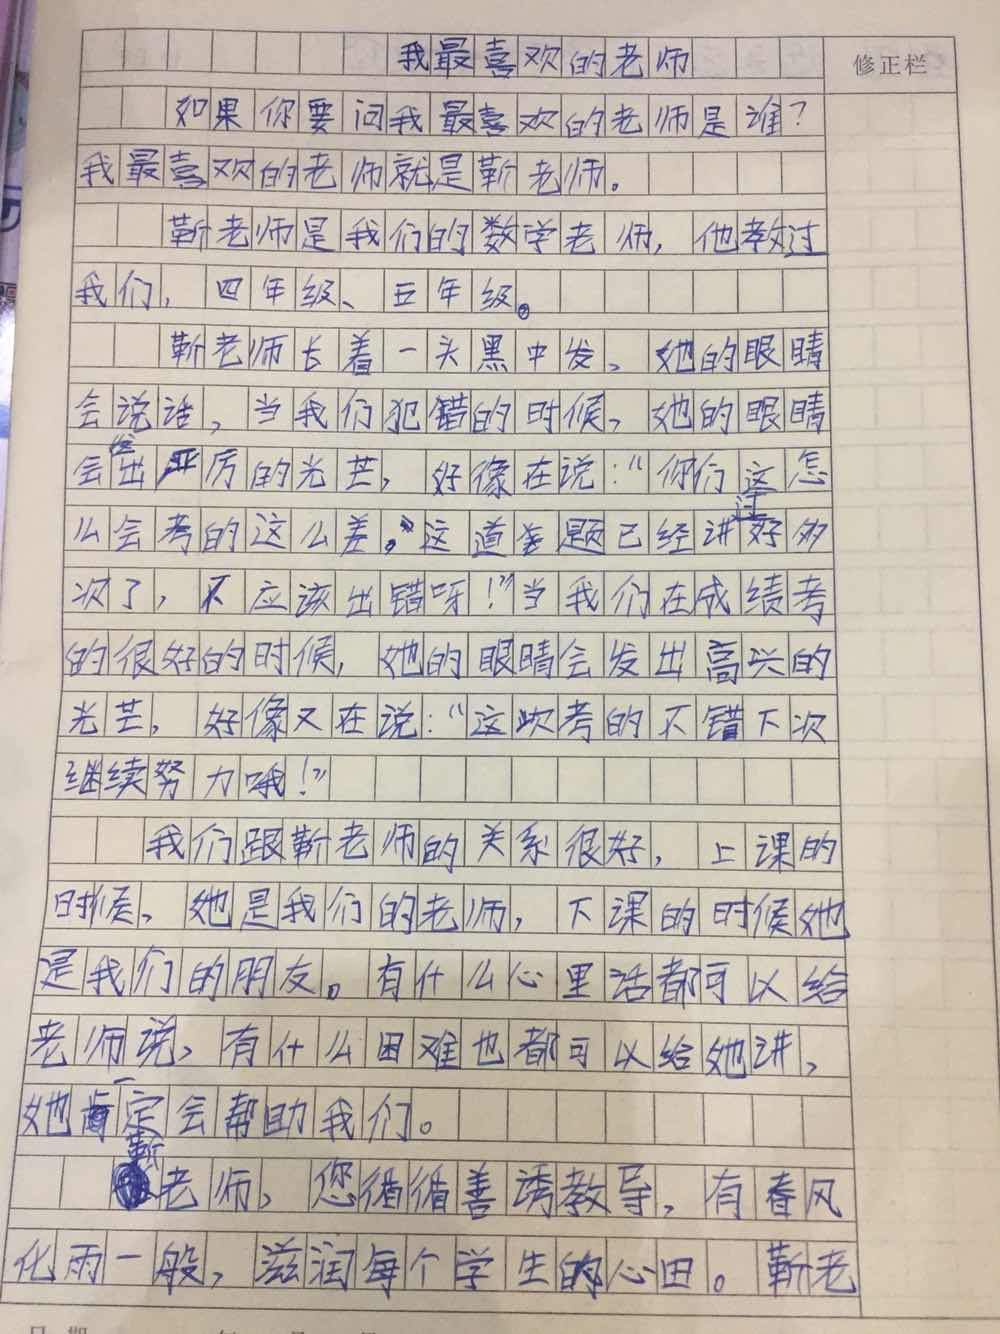 我最喜欢的老师
修正栏
如果你要问我最喜欢的老师是谁?
我最喜欢的老师就是靳老师。
靳老师是我们的数学老师,他教过
我们,四年级、五年级。
靳老师长着一头黑中发、她的眼睛
会说话,当我们犯错的时候,她的眼睛
会发出严厉的光芒,好像在说:“你们这怎
么会考的这么差。”这道题已经讲过好多
次了,不应该出错呀!”当我们在成绩考
的很好的时候,她的眼睛会发出高兴的
光芒,好像又在说:“这次考的不错下次
继续努力哦!”
我们跟靳老师的关系很好,上课的
时候、她是我们的老师,下课的时候她
是我们的朋友。有什么心里话都可以给
老师说、有什么困难也都可以给她讲、
她一定会帮助我们。
靳老师、您循循善诱教导,有春风
化雨一般,滋润每个学生的心田。靳老